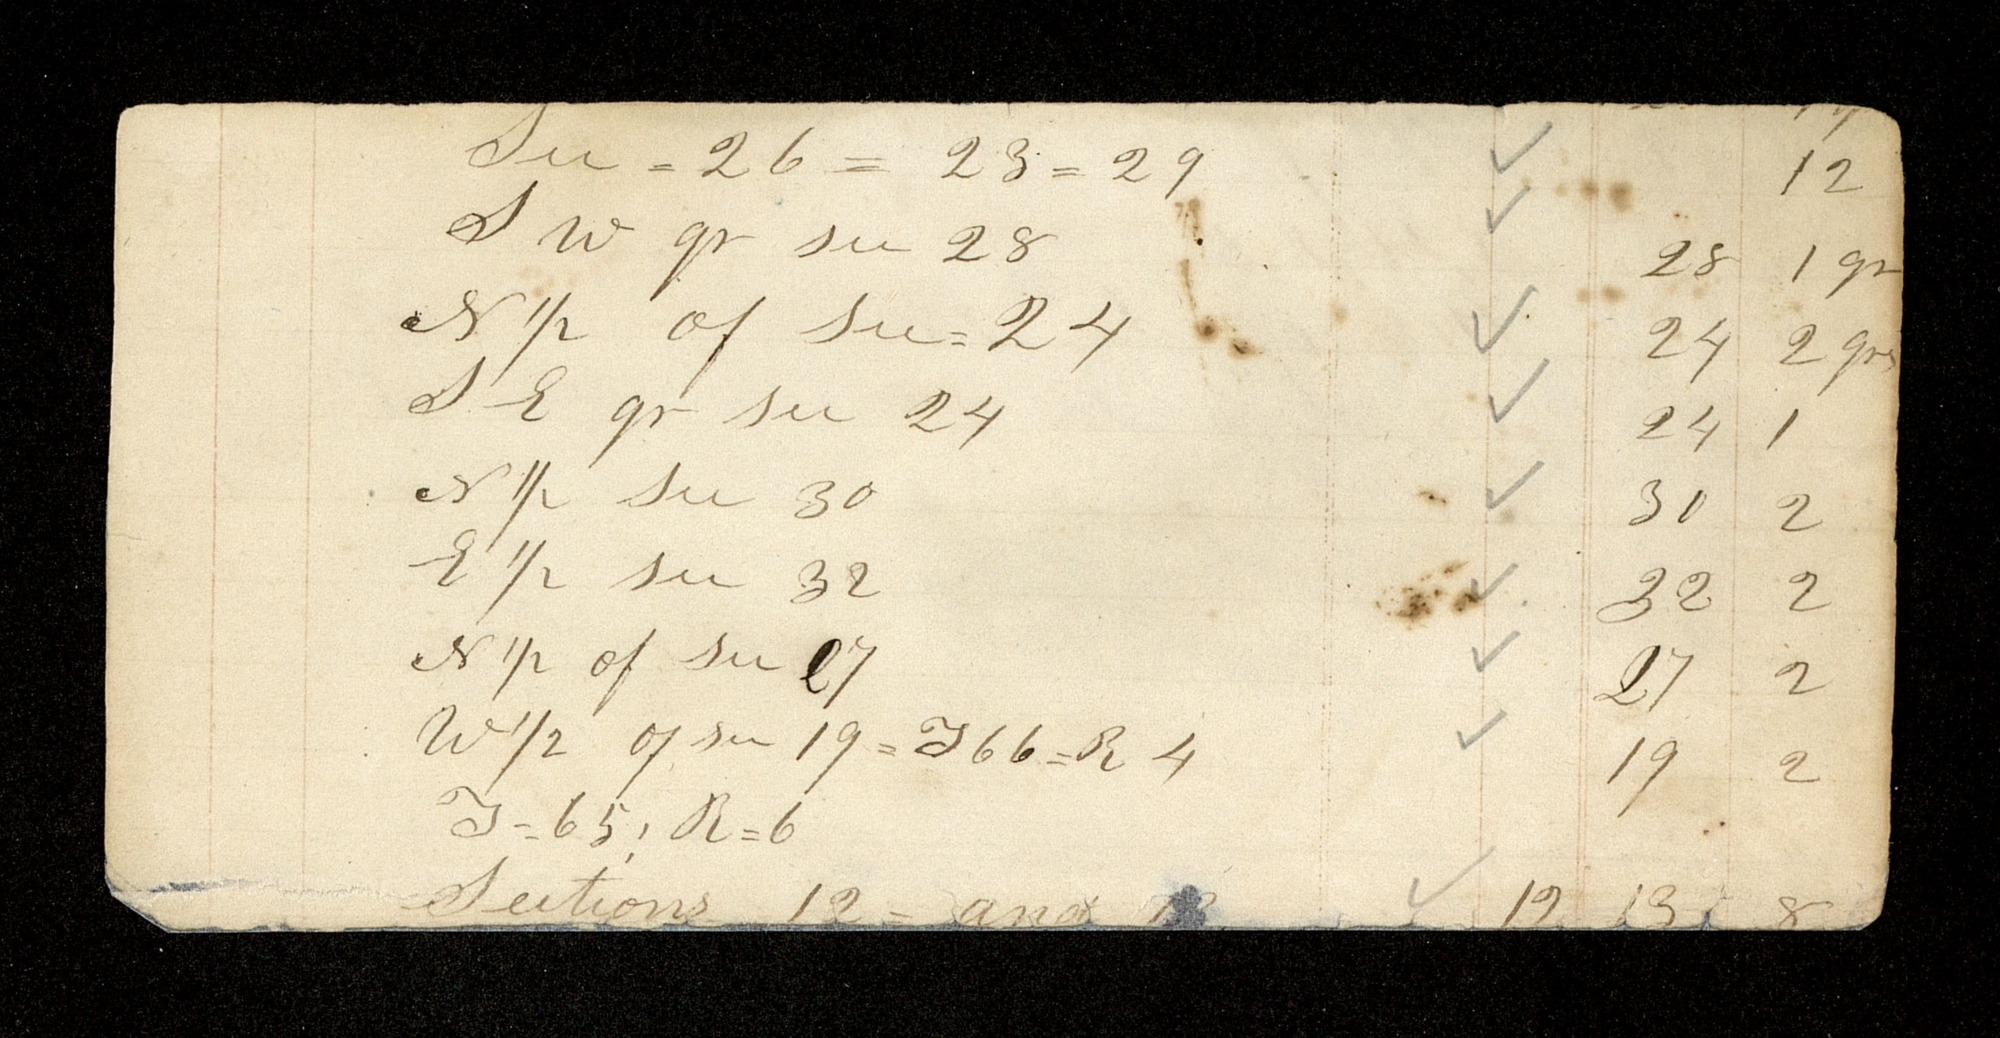 Sec = 26 = 23 = 29 ✓ 12
S W qr sec 28 ✓ 28 1 qr
N 1/2 of Sec = 24 ✓ 24 2 qrs
S E qr sec 24 ✓ 24 1
N 1/2 Sec 30 ✓ 30 2
E 1/2 sec 32 ✓ 32 2
N 1/2 of Sec 27 ✓ 27 2
W 1/2 of sec 19 = T 66 = R 4 ✓ 19 2
T = 65; R = 6
Sections 12 = and ✓ 12 13 8